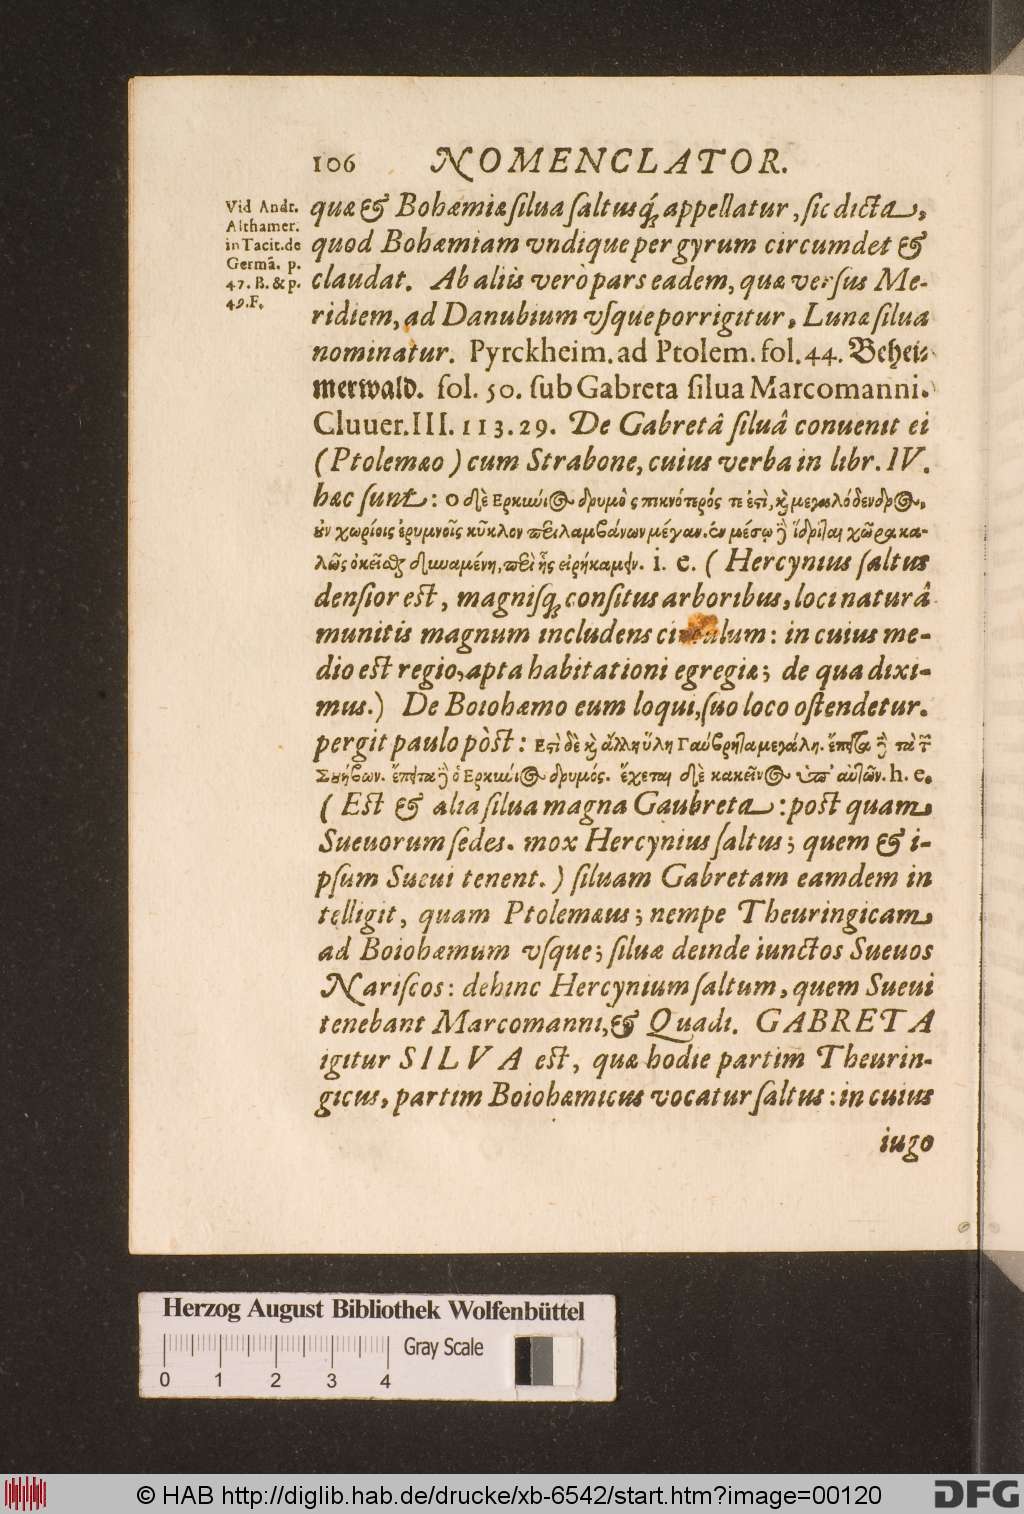 106 NOMENCLATOR.
Vid Andr.
Althamer.
in Tacit. de
Germã. p.
47. B. & p.
49. F.
quæ & Bohæmiæ silua saltusq́; appellatur, sic dicta,
quod Bohæmiam vndique per gyrum circumdet &
claudat. Ab aliis verò pars eadem, quæ versus Me-
ridiem, ad Danubium vsque porrigitur, Lunæ silua
nominatur. Pyrckheim. ad Ptolem. fol. 44. Behei-
merwald. fol. 50. sub Gabreta silua Marcomanni.
Cluuer. III. 113. 29. De Gabretâ siluâ conuenit ei
(Ptolemæo) cum Strabone, cuius verba in libr. IV.
hæc sunt: Ο δὲ Ερκύνιος δρυμὸς πυκνότερός τε ἐστὶ, καὶ μεγαλόδενδρος,
ἐν χωρίοις ἐρυμνοῖς κύκλον περιλαμβάνων μέγαν. ἐν μέσῳ δὲ ἵδρυται χώρα κα-
λῶς οἰκεῖσθαι δυναμένη, περὶ ἧς εἰρήκαμεν. i. e. (Hercynius saltus
densior est, magnisq; consitus arboribus, loci naturâ
munitis magnum includens circulum: in cuius me-
dio est regio, apta habitationi egregiæ; de qua dixi-
mus.) De Boiohæmo eum loqui, suo loco ostendetur.
pergit paulo pòst: Εστὶ δὲ καὶ ἄλλη ὕλη Γαύβρητα μεγάλη. ἔπειτα δὲ τὰ τῶν
Σουήβων. ἔπειτα δὲ ὁ Ερκύνιος δρυμός. ἔχεται δὲ κακεῖνος ὑπ' αὐτῶν. h. e.
(Est & alia silua magna Gaubreta: post quam
Sueuorum sedes. mox Hercynius saltus; quem & i-
psum Sueui tenent.) siluam Gabretam eamdem in
telligit, quam Ptolemæus; nempe Theuringicam
ad Boiohæmum vsque; siluæ deinde iunctos Sueuos
Nariscos: dehinc Hercynium saltum, quem Sueui
tenebant Marcomanni, & Quadi. GABRETA
igitur SILVA est, quæ hodie partim Theurin-
gicus, partim Boiohæmicus vocatur saltus: in cuius
iugo
Herzog August Bibliothek Wolfenbüttel
Gray Scale
0 1 2 3 4
© HAB http://diglib.hab.de/drucke/xb-6542/start.htm?image=00120
DFG